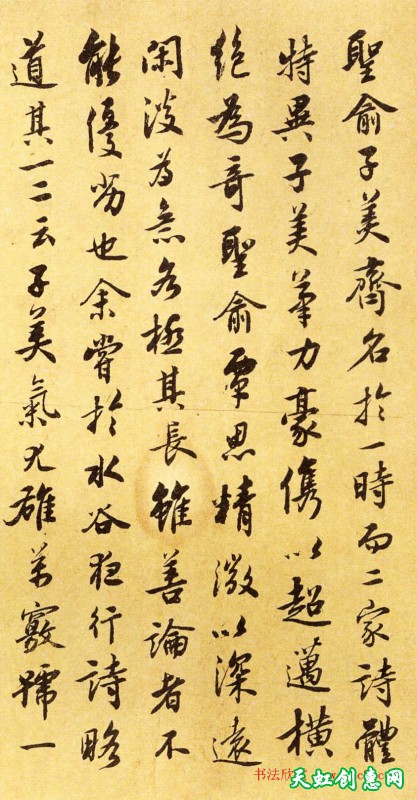 聖俞子美齊名於一時而二家詩體
特異子美筆力豪儁以超邁橫
絕為奇聖俞覃思精微以深遠
閑淡為意各極其長雖善論者不
能優劣也余嘗於水谷夜行詩略
道其一二云子美氣尤雄萬竅號一
书法欣
天虹创意网